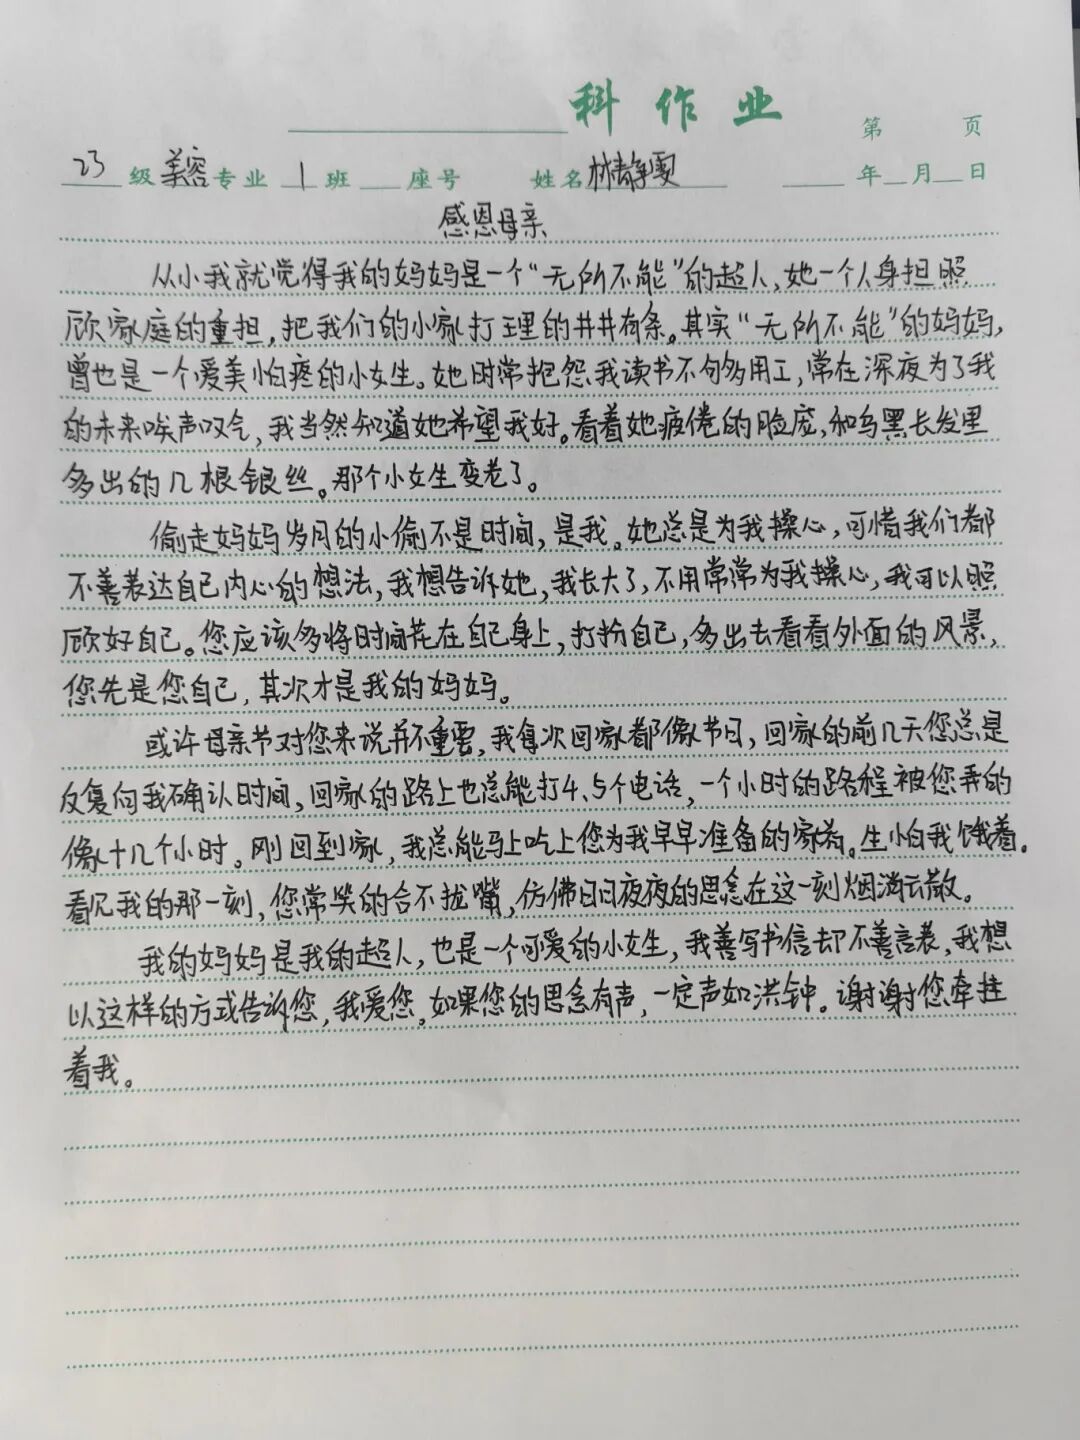 科作业
第 页
23级美容专业 1班 座号 姓名林静雯 年 月 日
感恩母亲
从小我就觉得我的妈妈是一个“无所不能”的超人，她一个人身担照
顾家庭的重担，把我们的小家打理的井井有条。其实“无所不能”的妈妈，
曾也是一个爱美怕疼的小女生。她时常抱怨我读书不够用工，常在深夜为了我
的未来唉声叹气，我当然知道她希望我好。看着她疲倦的脸庞，和乌黑长发里
多出的几根银丝。那个小女生变老了。
偷走妈妈岁月的小偷不是时间，是我。她总是为我操心，可惜我们都
不善表达自己内心的想法，我想告诉她，我长大了，不用常常为我操心，我可以照
顾好自己。您应该多将时间花在自己身上，打扮自己，多出去看看外面的风景，
您先是您自己，其次才是我的妈妈。
或许母亲节对您来说并不重要，我每次回家都像节日，回家的前几天您总是
反复向我确认时间，回家的路上也总能打4、5个电话，一个小时的路程被您弄的
像十几个小时。刚回到家，我总能马上吃上您为我早早准备的家肴。生怕我饿着。
看见我的那一刻，您常笑的合不拢嘴，仿佛日日夜夜的思念在这一刻烟消云散。
我的妈妈是我的超人，也是一个可爱的小女生，我善写书信却不善言表，我想
以这样的方式告诉您，我爱您。如果您的思念有声，一定声如洪钟。谢谢您牵挂
着我。